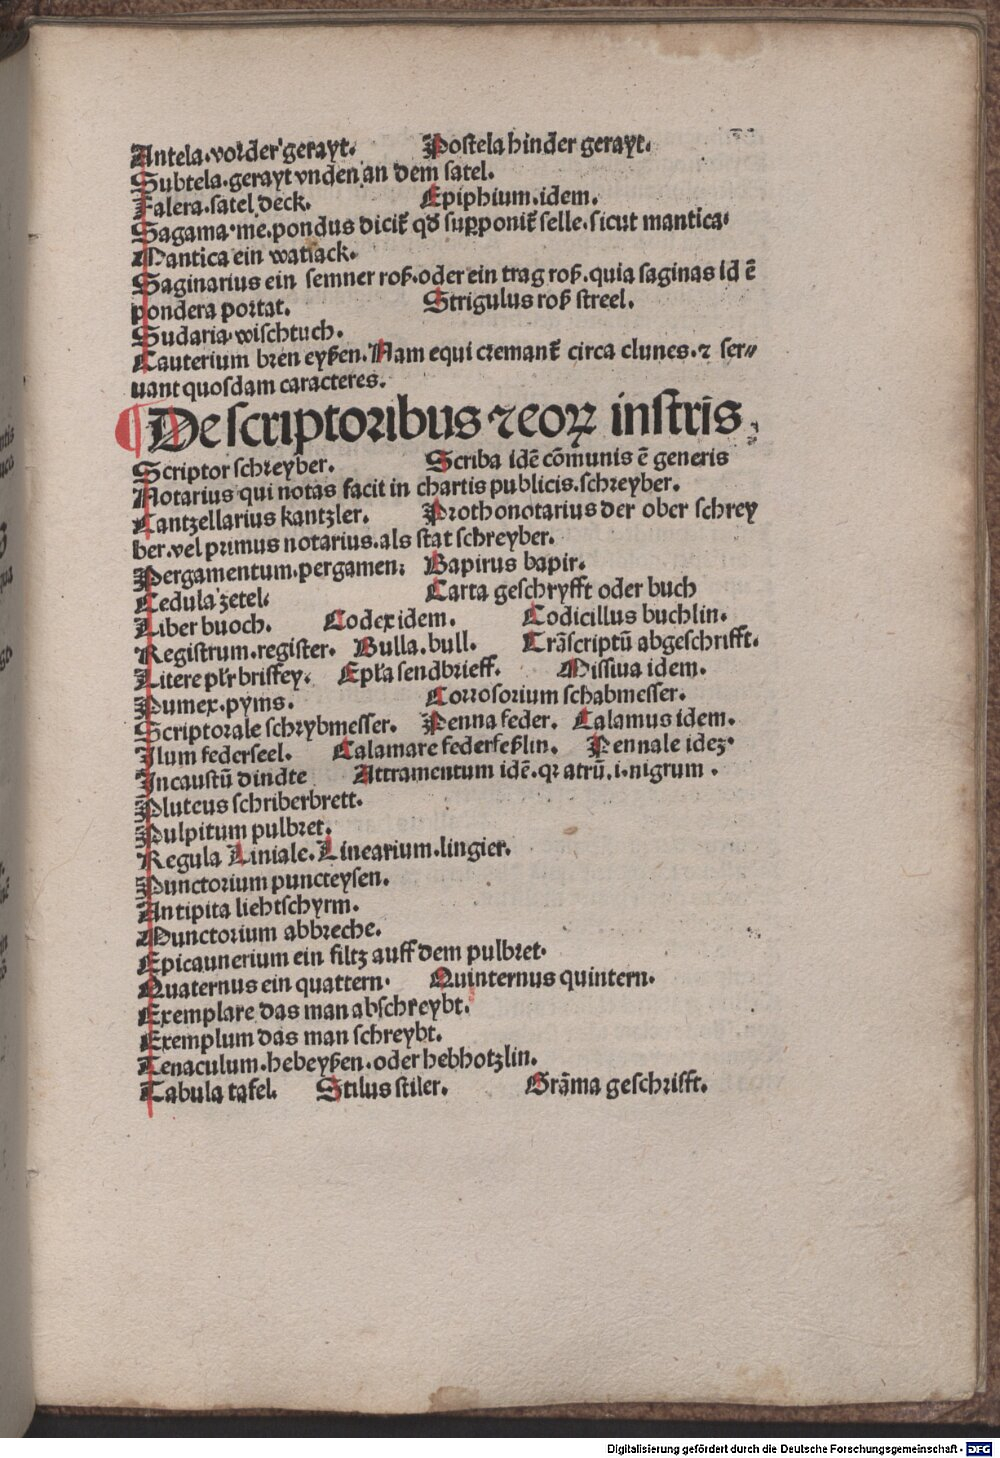 Antela.vorder gerayt. Postela hinder gerayt.
Subtela.gerayt vnden an dem satel.
Falera.satel deck. Epiphium.idem.
Sagama.me.pondus dicit̃ qđ supponit̃ selle.sicut mantica.
Mantica ein watsack.
Saginarius ein semner roß.oder ein trag roß.quia saginas id ē
pondera portat. Strigulus roß streel.
Sudaria.wischtuch.
Cauterium bren eyßen.Nam equi cremant̃ circa clunes.⁊ ser⸗
uant quosdam caracteres.
De scriptoribus ⁊ eoꝝ instrīs
Scriptor schreyber. Scriba idē cōmunis ē generis
Notarius qui notas facit in chartis publicis.schreyber.
Cantzellarius kantzler. Prothonotarius der ober schrey
ber.vel primus notarius.als stat schreyber.
Pergamentum.pergamen. Bapirus bapir.
Cedula zetel. Carta geschryfft oder buch
Liber buoch. Codex idem. Codicillus buchlin.
Registrum.register. Bulla.bull. Trāscriptū abgeschrifft.
Litere pl̃r briffey. Epl̃a sendbrieff. Missiua idem.
Pumex.pyms. Corrosorium schabmesser.
Scriptorale schrybmesser. Penna feder. Calamus idem.
Ilum federseel. Calamare federkeßlin. Pennale ideʒ.
Incaustū dindte Attramentum idē.qꝛ atrū.i.nigrum.
Pluteus schriberbrett.
Pulpitum pulbret.
Regula Liniale.Linearium.lingier.
Punctorium puncteysen.
Antipita liehtschyrm.
Munctorium abbreche.
Epicaunerium ein filtz auff dem pulbret.
Quaternus ein quattern. Quinternus quintern.
Exemplare das man abschreybt.
Exemplum das man schreybt.
Tenaculum.hebeyßen.oder hebhotzlin.
Tabula tafel. Stilus stiler. Grāma geschrifft.
Digitalisierung gefördert durch die Deutsche Forschungsgemeinschaft - DFG